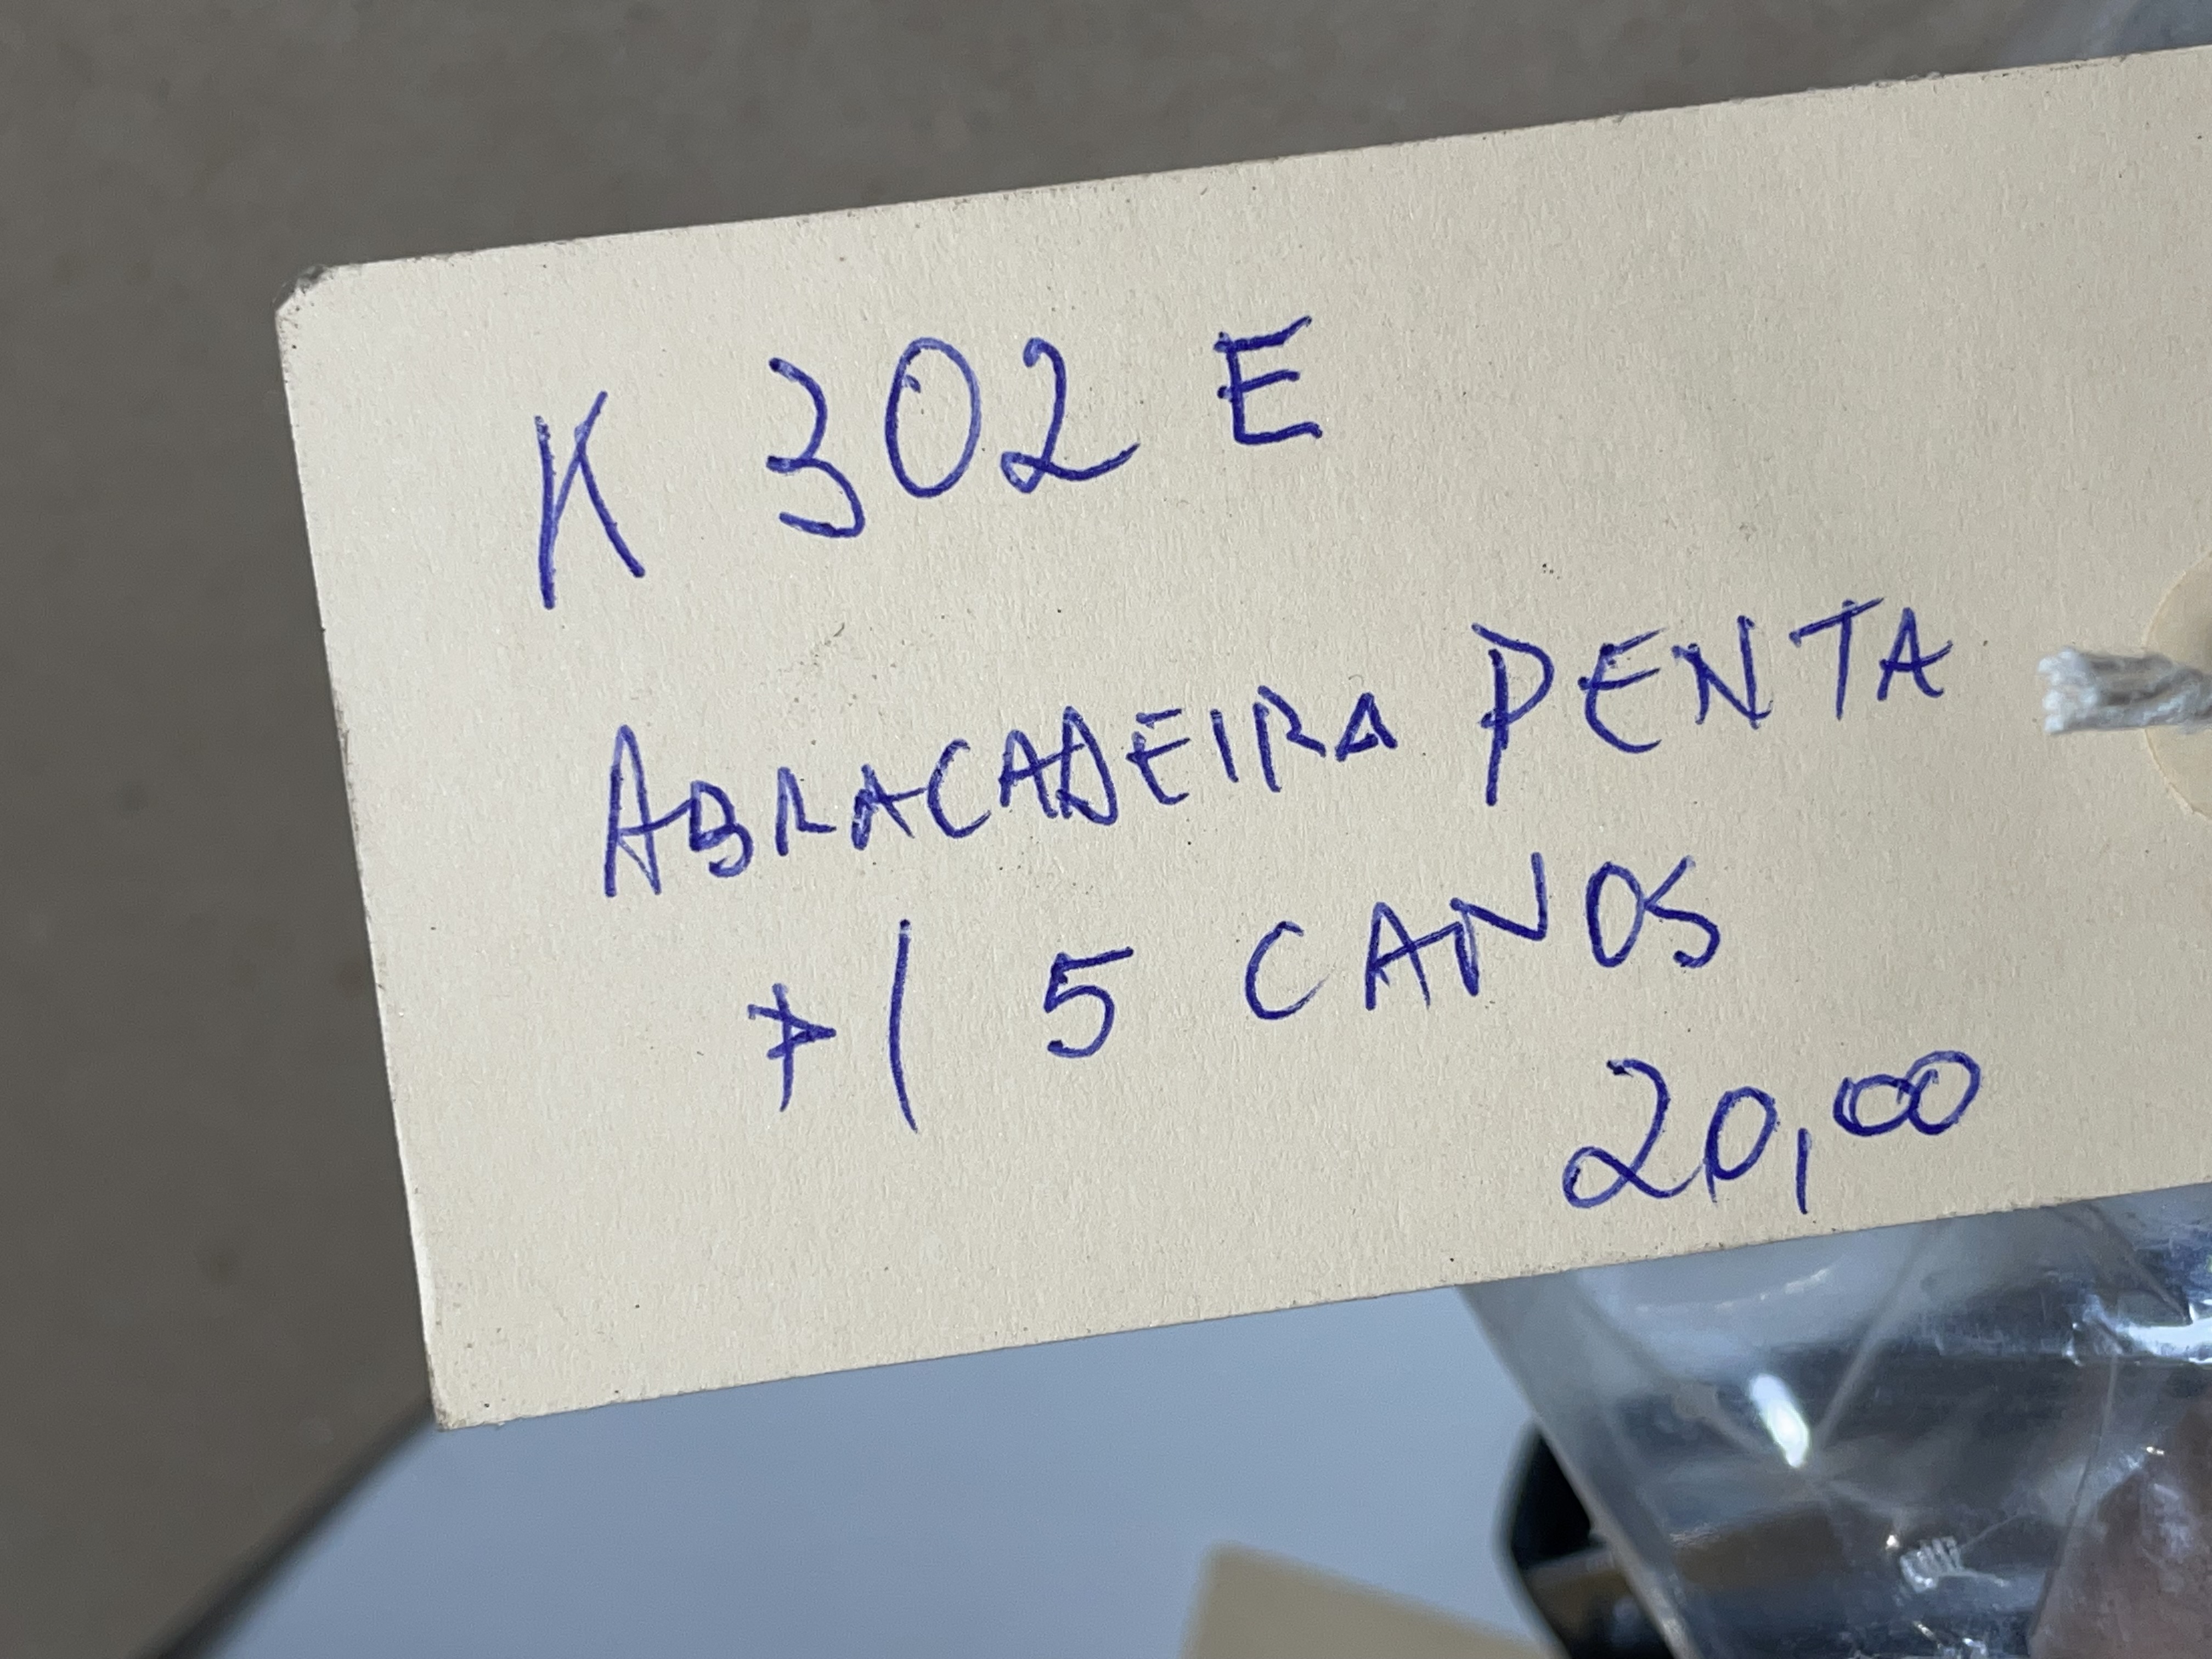 K 302 E
ABRACADEIRA PENTA
P/ 5 CANOS
20,00